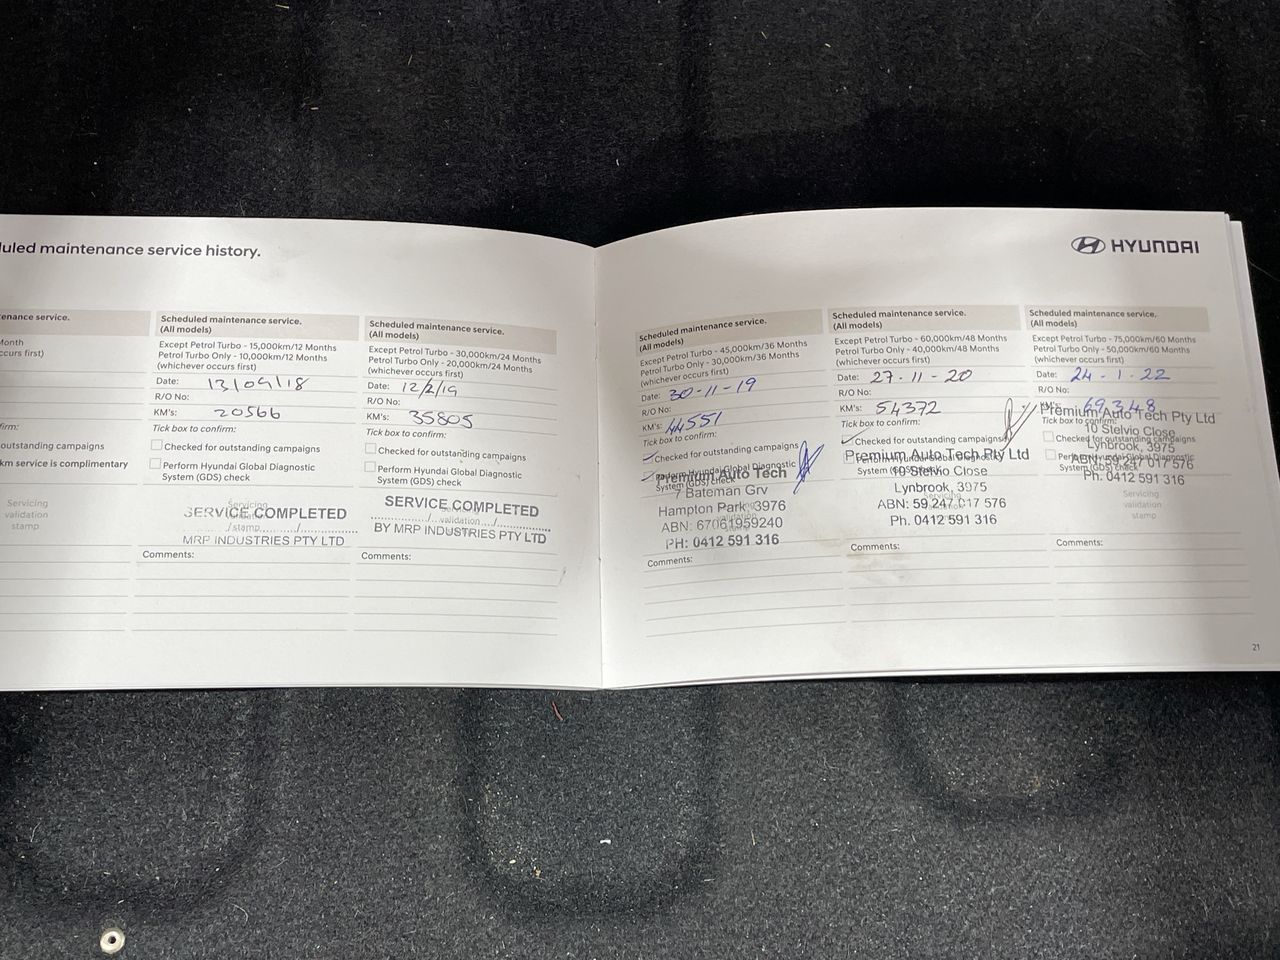 duled maintenance service history.
enance service.
Month
ccurs first)
firm:
outstanding campaigns
km service is complimentary
Servicing
validation
stamp
Scheduled maintenance service.
(All models)
Except Petrol Turbo - 15,000km/12 Months
Petrol Turbo Only - 10,000km/12 Months
(whichever occurs first)
Date: 13/09/18
R/O No:
KM's: 20566
Tick box to confirm:
Checked for outstanding campaigns
Perform Hyundai Global Diagnostic
System (GDS) check
Servicing
SERVICE COMPLETED
stamp
MRP INDUSTRIES PTY LTD
Comments:
Scheduled maintenance service.
(All models)
Except Petrol Turbo - 30,000km/24 Months
Petrol Turbo Only - 20,000km/24 Months
(whichever occurs first)
Date: 12/2/19
R/O No:
KM's: 35805
Tick box to confirm:
Checked for outstanding campaigns
Perform Hyundai Global Diagnostic
System (GDS) check
SERVICE COMPLETED
validation
BY MRP INDUSTRIES PTY LTD
Comments:
HYUNDAI
Scheduled maintenance service.
(All models)
Except Petrol Turbo - 45,000km/36 Months
Petrol Turbo Only - 30,000km/36 Months
(whichever occurs first)
Date: 30-11-19
R/O No:
KM's: 44551
Tick box to confirm:
Checked for outstanding campaigns
Perform Hyundai Global Diagnostic
System (GDS) check
Premium Auto Tech
7 Bateman Grv
Hampton Park, 3976
ABN: 67061959240
PH: 0412 591 316
Comments:
Scheduled maintenance service.
(All models)
Except Petrol Turbo - 60,000km/48 Months
Petrol Turbo Only - 40,000km/48 Months
(whichever occurs first)
Date: 27-11-20
R/O No:
KM's: 54372
Tick box to confirm:
Checked for outstanding campaigns
Perform Hyundai Global Diagnostic
System (GDS) check
Premium Auto Tech Pty Ltd
10 Stelvio Close
Lynbrook, 3975
ABN: 59 247 017 576
Ph. 0412 591 316
Comments:
Scheduled maintenance service.
(All models)
Except Petrol Turbo - 75,000km/60 Months
Petrol Turbo Only - 50,000km/60 Months
(whichever occurs first)
Date: 24-1-22
R/O No:
KM's: 69348
Tick box to confirm:
Checked for outstanding campaigns
Perform Hyundai Global Diagnostic
System (GDS) check
Premium Auto Tech Pty Ltd
10 Stelvio Close
Lynbrook, 3975
ABN: 59 247 017 576
Ph. 0412 591 316
Servicing
validation
stamp
Comments:
21